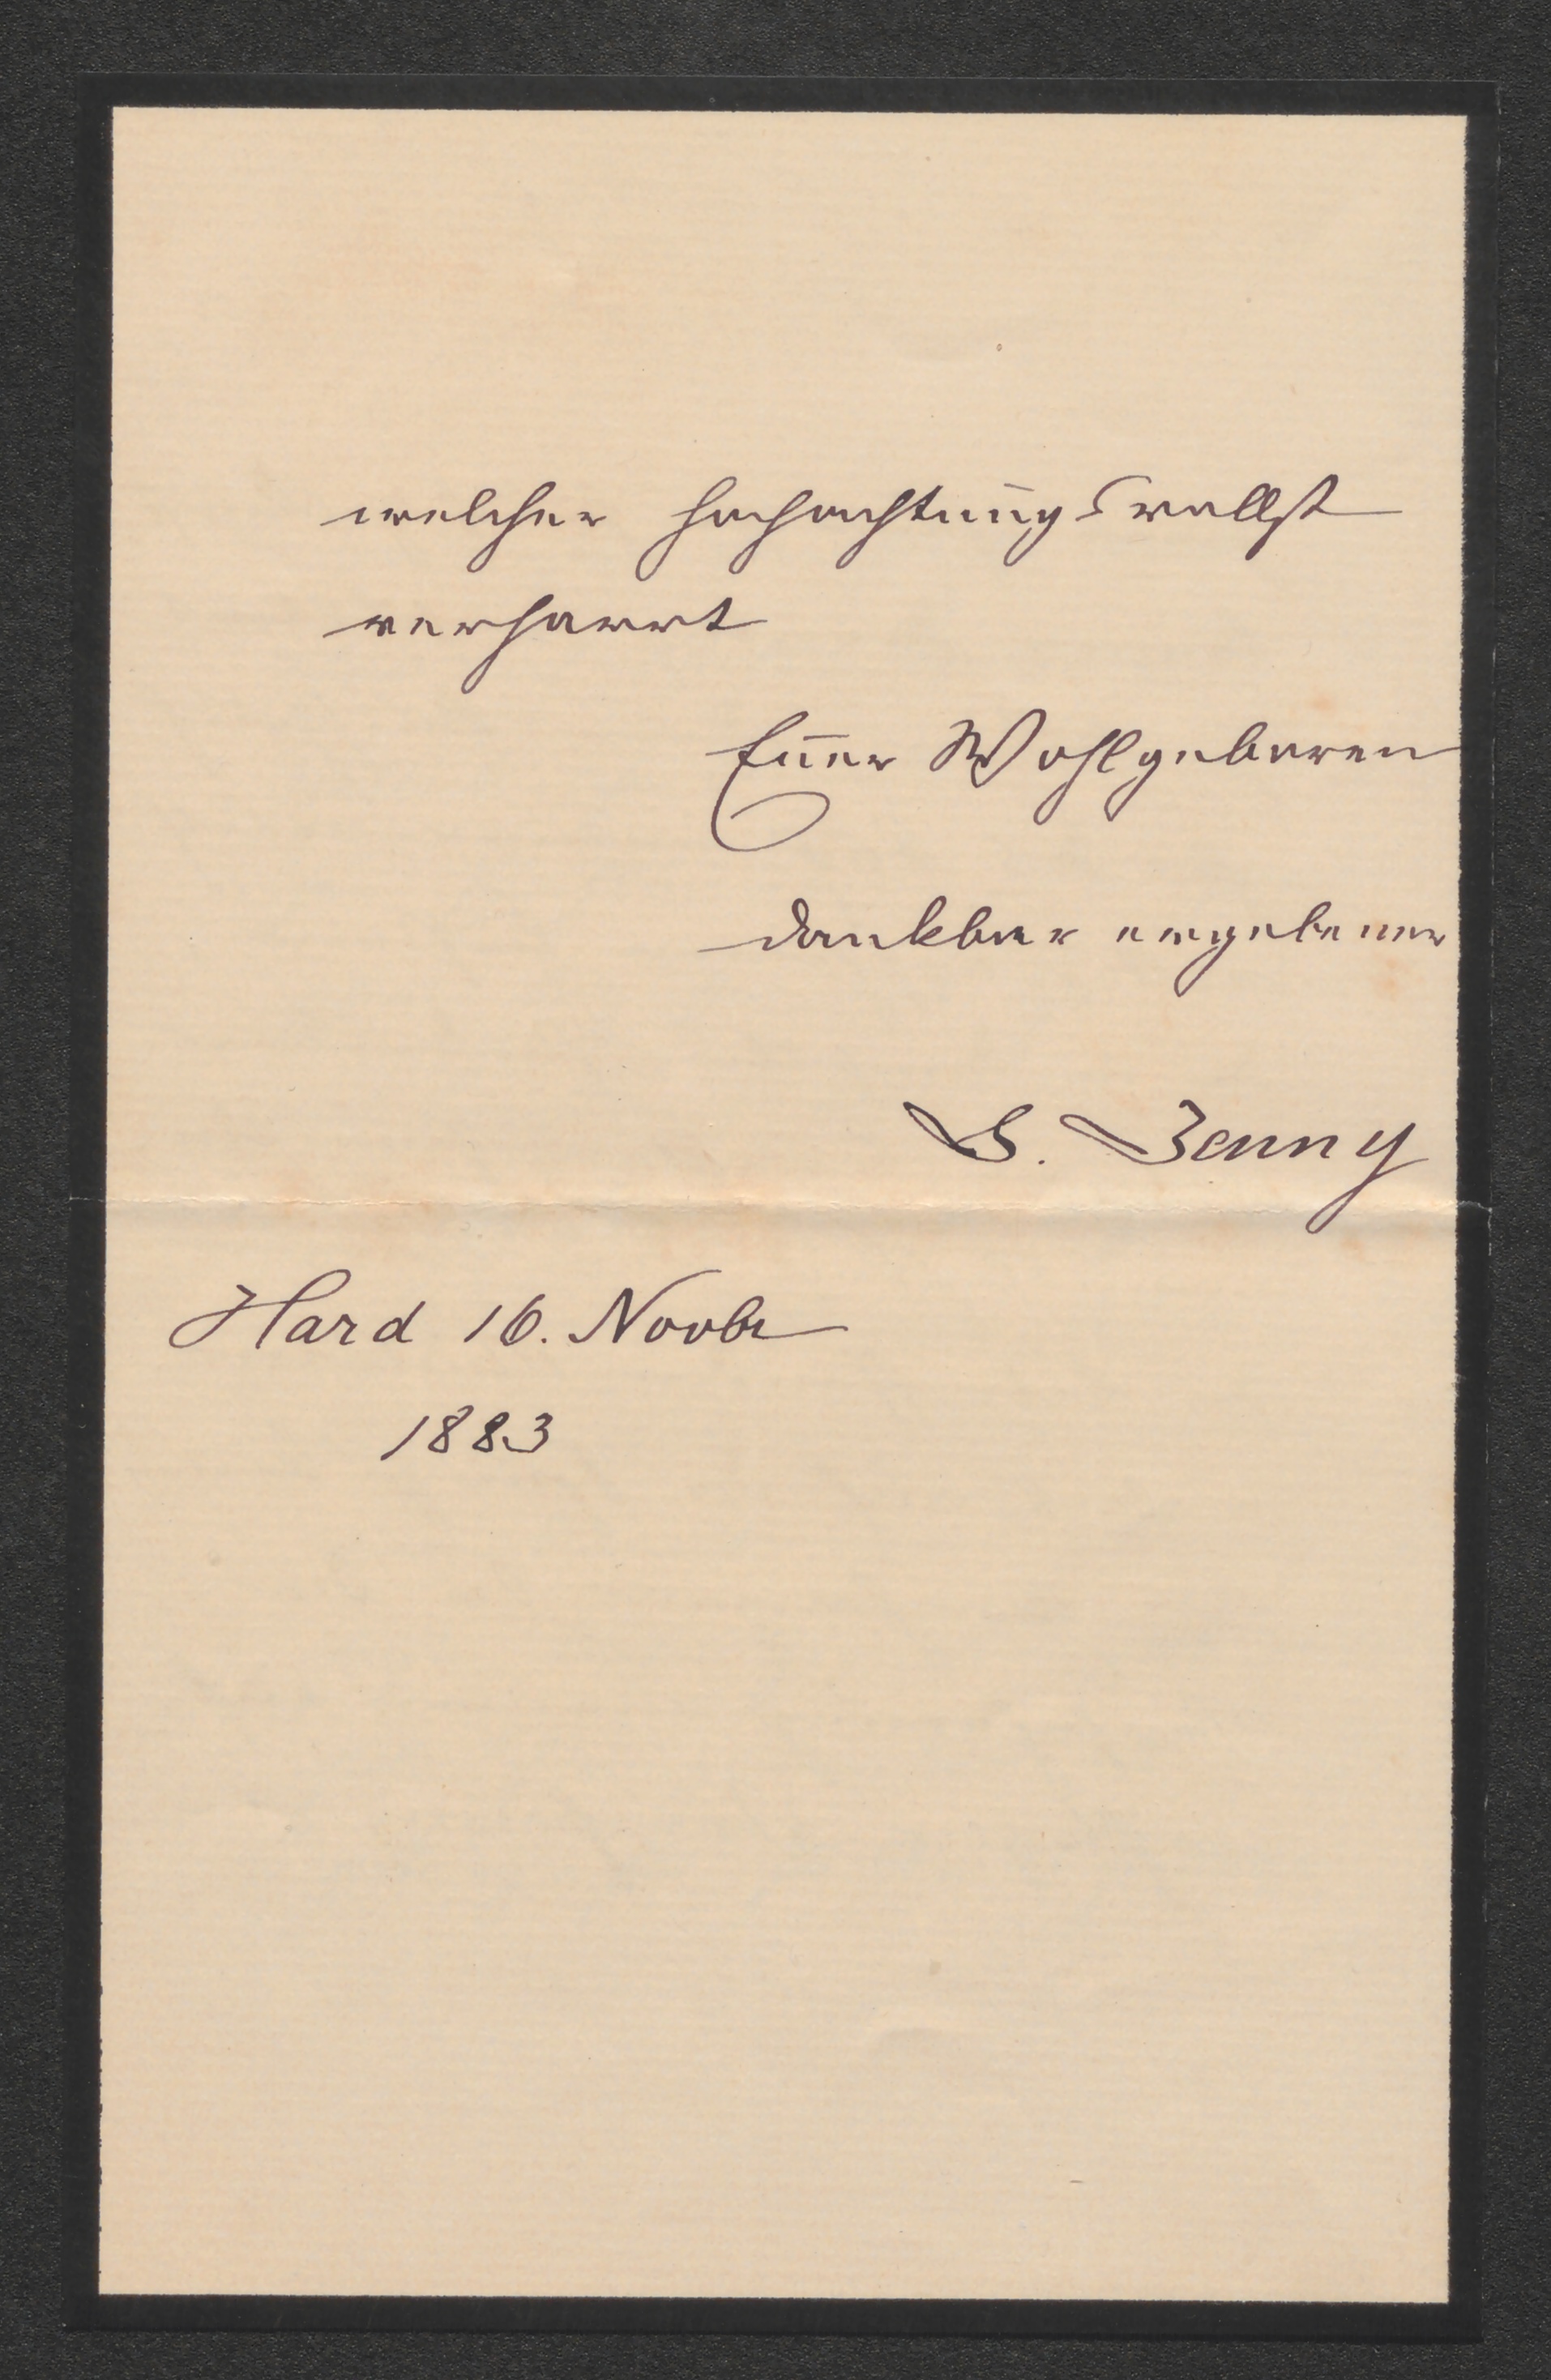 welcher hochachtungsvollst
verharrt
Euer Wohlgeboren
dankbar ergebener
S. Jenny
Hard 16. Novbr
1883